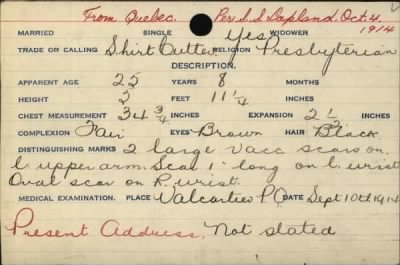 From Quebec. Per S.S. Lapland. Oct. 4. 1914
MARRIED SINGLE Yes WIDOWER
TRADE OR CALLING Shirt Cutter RELIGION Presbyterian
DESCRIPTION.
APPARENT AGE 25 YEARS 8 MONTHS
HEIGHT 5 FEET 11 1/4 INCHES
CHEST MEASUREMENT 34 3/4 INCHES EXPANSION 2 1/2 INCHES
COMPLEXION Fair EYES Brown HAIR Black
DISTINGUISHING MARKS 2 large vacc scars on
L upper arm. Scar 1" long on L wrist
Oval scar on R. wrist.
MEDICAL EXAMINATION. PLACE Valcartier P.Q DATE Sept 10th 1914
Present Address. Not stated